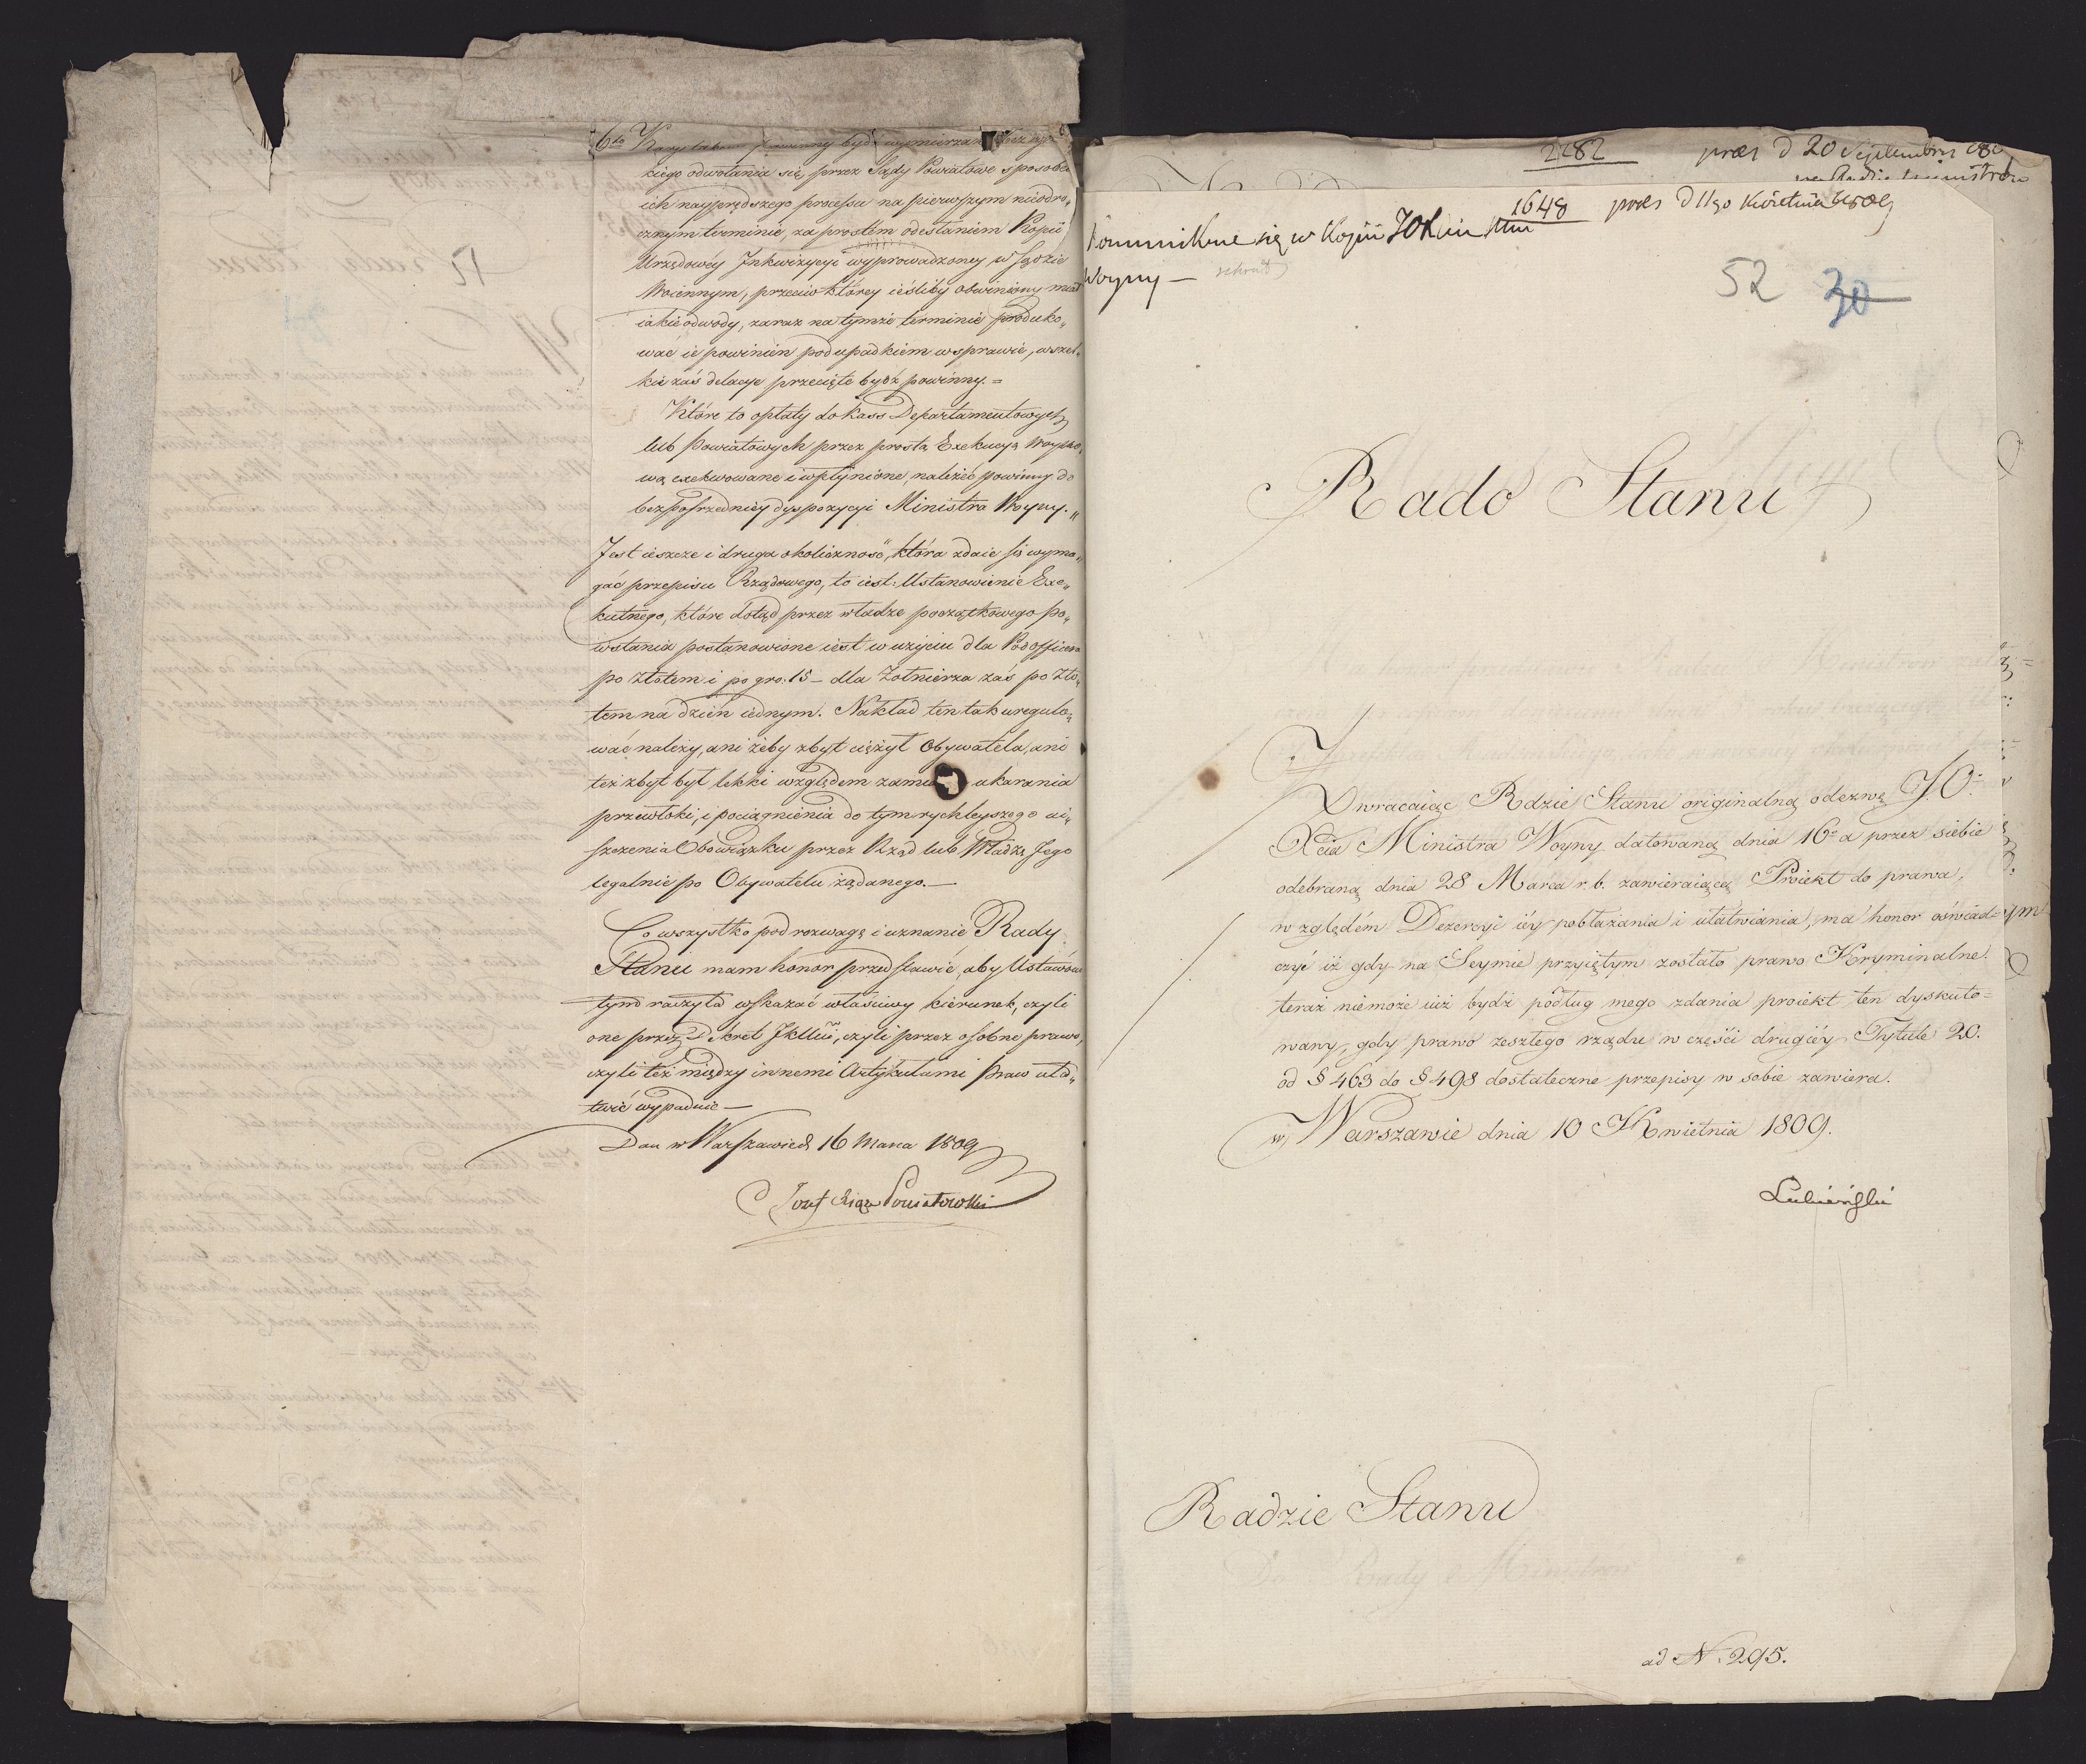 6to Kary takowe powinny bydź wymierzane bez
kiego odwołania się, przez Sądy Powiatowe sposobem
ich nayprędszego processu na pierwszym nieodro„
cznym terminie, za prostem odesłaniem Kopii
Urzędowéy Inkwizycyi wyprowadzoney w Sądzie
Woiennym, przeciw którey ieśliby obwiniony miał
iakie odwody, zaraz na tymże terminie produko„
wać ie powinien pod upadkiem w sprawie, wszel„
kie zaś delacye przecięte bydź powinny. =
Które to opłaty do Kass Departamentowych
lub Powiatowych przez prostą Exekucyą Woysko„
wą exekwowane i wpłynione, należeć powinny do
bezpośredniéy dyspozycyi Ministra Woyny. „
Jest ieszcze i druga okoliczność, która zdaie się wyma„
gać przepisu Rządowego, to iest: Ustanowienie Exe„
kutnego, które dotąd przez władze początkowego po„
wstania postanowione iest w użyciu dla Podofficera
po złotem i po gro: 15 – dla Żołnierza zaś po Zło„
tem na dzień iednym. Nakład ten tak uregulo„
wać należy, ani żeby zbyt ciężył Obywatela, ani
też zbyt był lekki względem ukarania
przewłoki, i pociągnienia do tym rychleyszego ui„
szczenia Obowiązku przez Rząd lub Władzę Jego
legalnie po Obywatelu żądanego. —
Co wszystko pod rozwagę i uznanie Rady
Stanu mam honor przedstawić, aby Ustawom
tym raczyła wskazać właściwy kierunek, czyli
one przez Dekret JKMci, czyli przez osobne prawo,
czyli też między innemi Artykułami Praw uła„
twić wypadnie —
Dan w Warszawie d. 16 Marca 1809
Jozef Xiąże Poniatowski
2282 praes d 20 Septembris
1648 praes d 11go Kwietnia 1809
Kommunikuie się w Kopii JOXciu Mtrwi
Woyny —
52 30
Rado Stanu
Zwracaiąc Radzie Stanu originalną odezwę JO:
Xcia Ministra Woyny datowaną dnia 16o a przez siebie
odebraną dnia 28 Marca r. b. zawieraiącą Proiekt do prawa,
względem Dezercyi iéy pobłażania i ułatwiania, ma honor oświad=
czyć iż gdy na Seymie przyiętym zostało prawo Kryminalne.
teraz niemoże iuż bydź podług mego zdania proiekt ten dyskuto=
wany, gdy prawo zeszłego rządu w części drugiéy Tytule 20.
od § 463 do § 498 dostateczne przepisy w sobie zawiera.
w Warszawie dnia 10 Kwietnia 1809.
Lubieński
Radzie Stanu
ad N. 295.